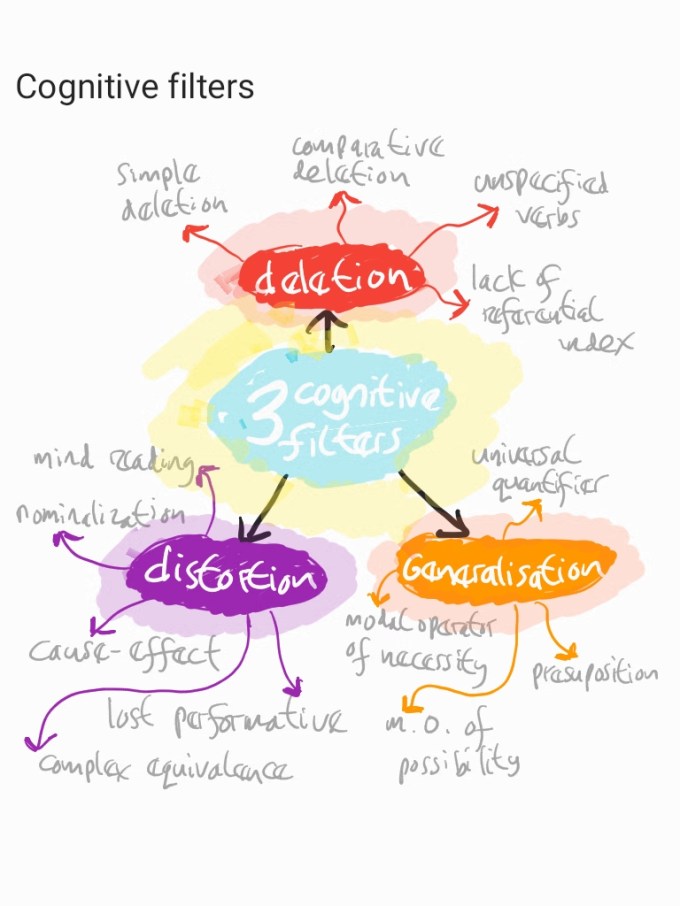 Cognitive filters
simple
deletion
comparative
deletion
unspecified
verbs
deletion
lack of
referential
index
3 cognitive
filters
mind reading
nominalization
distortion
cause-effect
lost performative
complex equivalence
universal
quantifier
Generalisation
modal operator
of necessity
presuposition
m.o. of
possibility